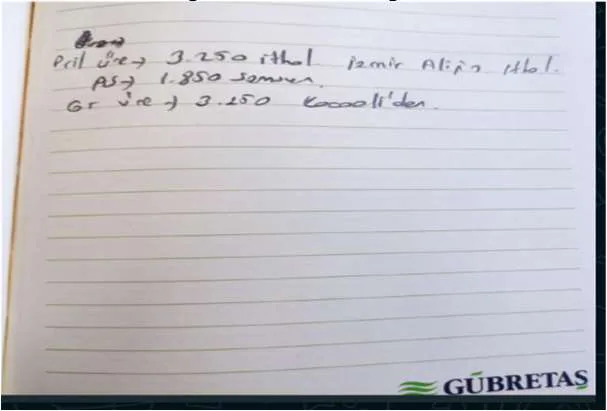 Pril üre → 3.250 ithal izmir Aliağa ithal.
AS → 1.850 Samsun.
Gr üre → 3.250 Kocaeli'den.
GÜBRETAŞ